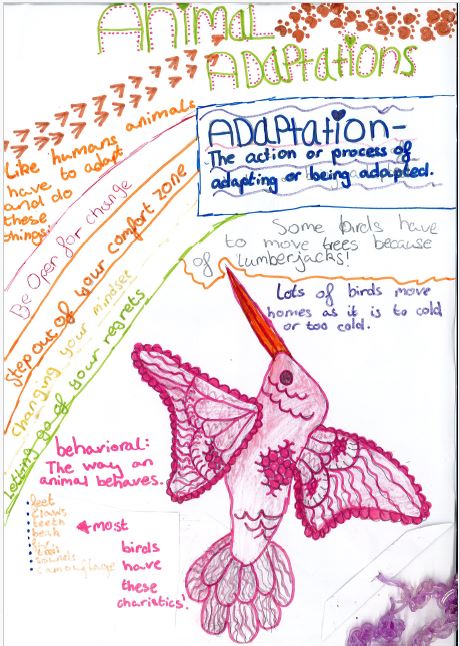 Animal
Adaptations
Like humans animals
have to adapt
and do
these
things.
Be Open for change
step out of your comfort zone
changing your mindset
Letting go of your regrets
ADaptation-
The action or process of
adapting or being adapted.
Some birds have
to move trees because
of lumberjacks!
Lots of birds move
homes as it is to cold
or too cold.
behavioral:
The way an
animal behaves.
feet
claws
teeth
beak
camouflage
most
birds
have
these
charistics!